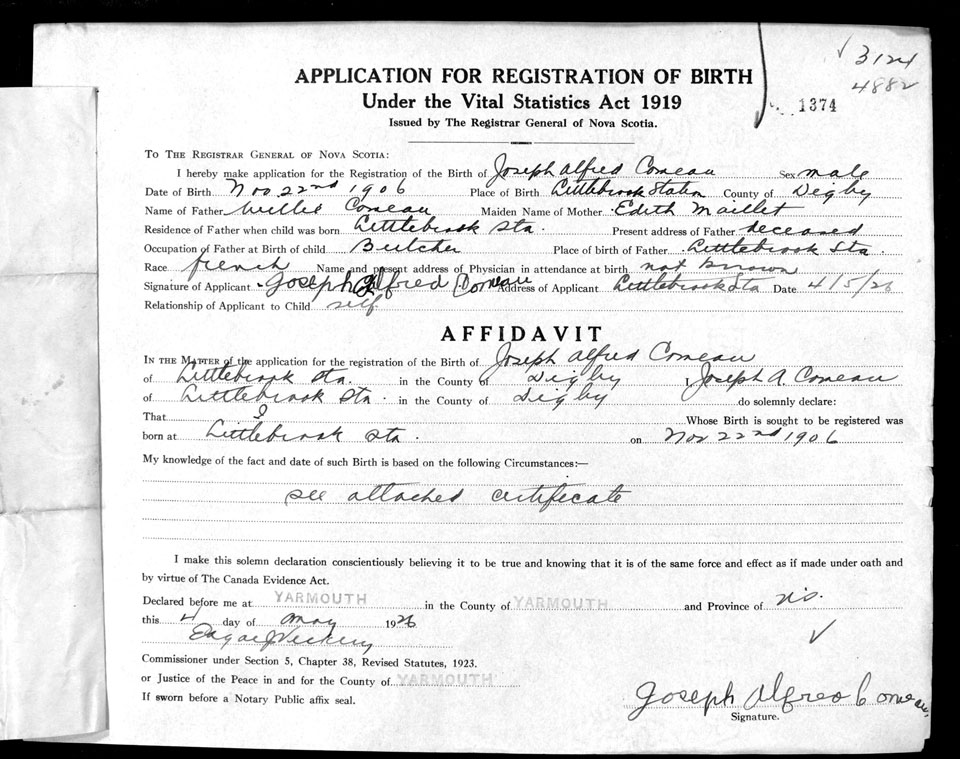 ✓ 3124
4882
1374
APPLICATION FOR REGISTRATION OF BIRTH
Under the Vital Statistics Act 1919
Issued by The Registrar General of Nova Scotia.
TO THE REGISTRAR GENERAL OF NOVA SCOTIA:
I hereby make application for the Registration of the Birth of Joseph Alfred Comeau Sex male
Date of Birth Nov 22nd 1906 Place of Birth Littlebrook Station County of Digby
Name of Father Willie Comeau Maiden Name of Mother Edith Maillet
Residence of Father when child was born Littlebrook Sta. Present address of Father deceased
Occupation of Father at Birth of child Butcher Place of birth of Father Littlebrook Sta.
Race french Name and present address of Physician in attendance at birth not known
Signature of Applicant Joseph Alfred Comeau Address of Applicant Littlebrook Sta Date 4/5/26
Relationship of Applicant to Child self
AFFIDAVIT
IN THE MATTER of the application for the registration of the Birth of Joseph Alfred Comeau
of Littlebrook Sta. in the County of Digby I, Joseph A. Comeau
of Littlebrook Sta. in the County of Digby do solemnly declare:
That I Whose Birth is sought to be registered was
born at Littlebrook Sta. on Nov 22nd 1906
My knowledge of the fact and date of such Birth is based on the following Circumstances:—
see attached certificate
I make this solemn declaration conscientiously believing it to be true and knowing that it is of the same force and effect as if made under oath and
by virtue of The Canada Evidence Act.
Declared before me at YARMOUTH in the County of YARMOUTH and Province of N.S.
this 4 day of May 1926 ✓
Commissioner under Section 5, Chapter 38, Revised Statutes, 1923.
or Justice of the Peace in and for the County of YARMOUTH
If sworn before a Notary Public affix seal.
Joseph Alfred Comeau
Signature.